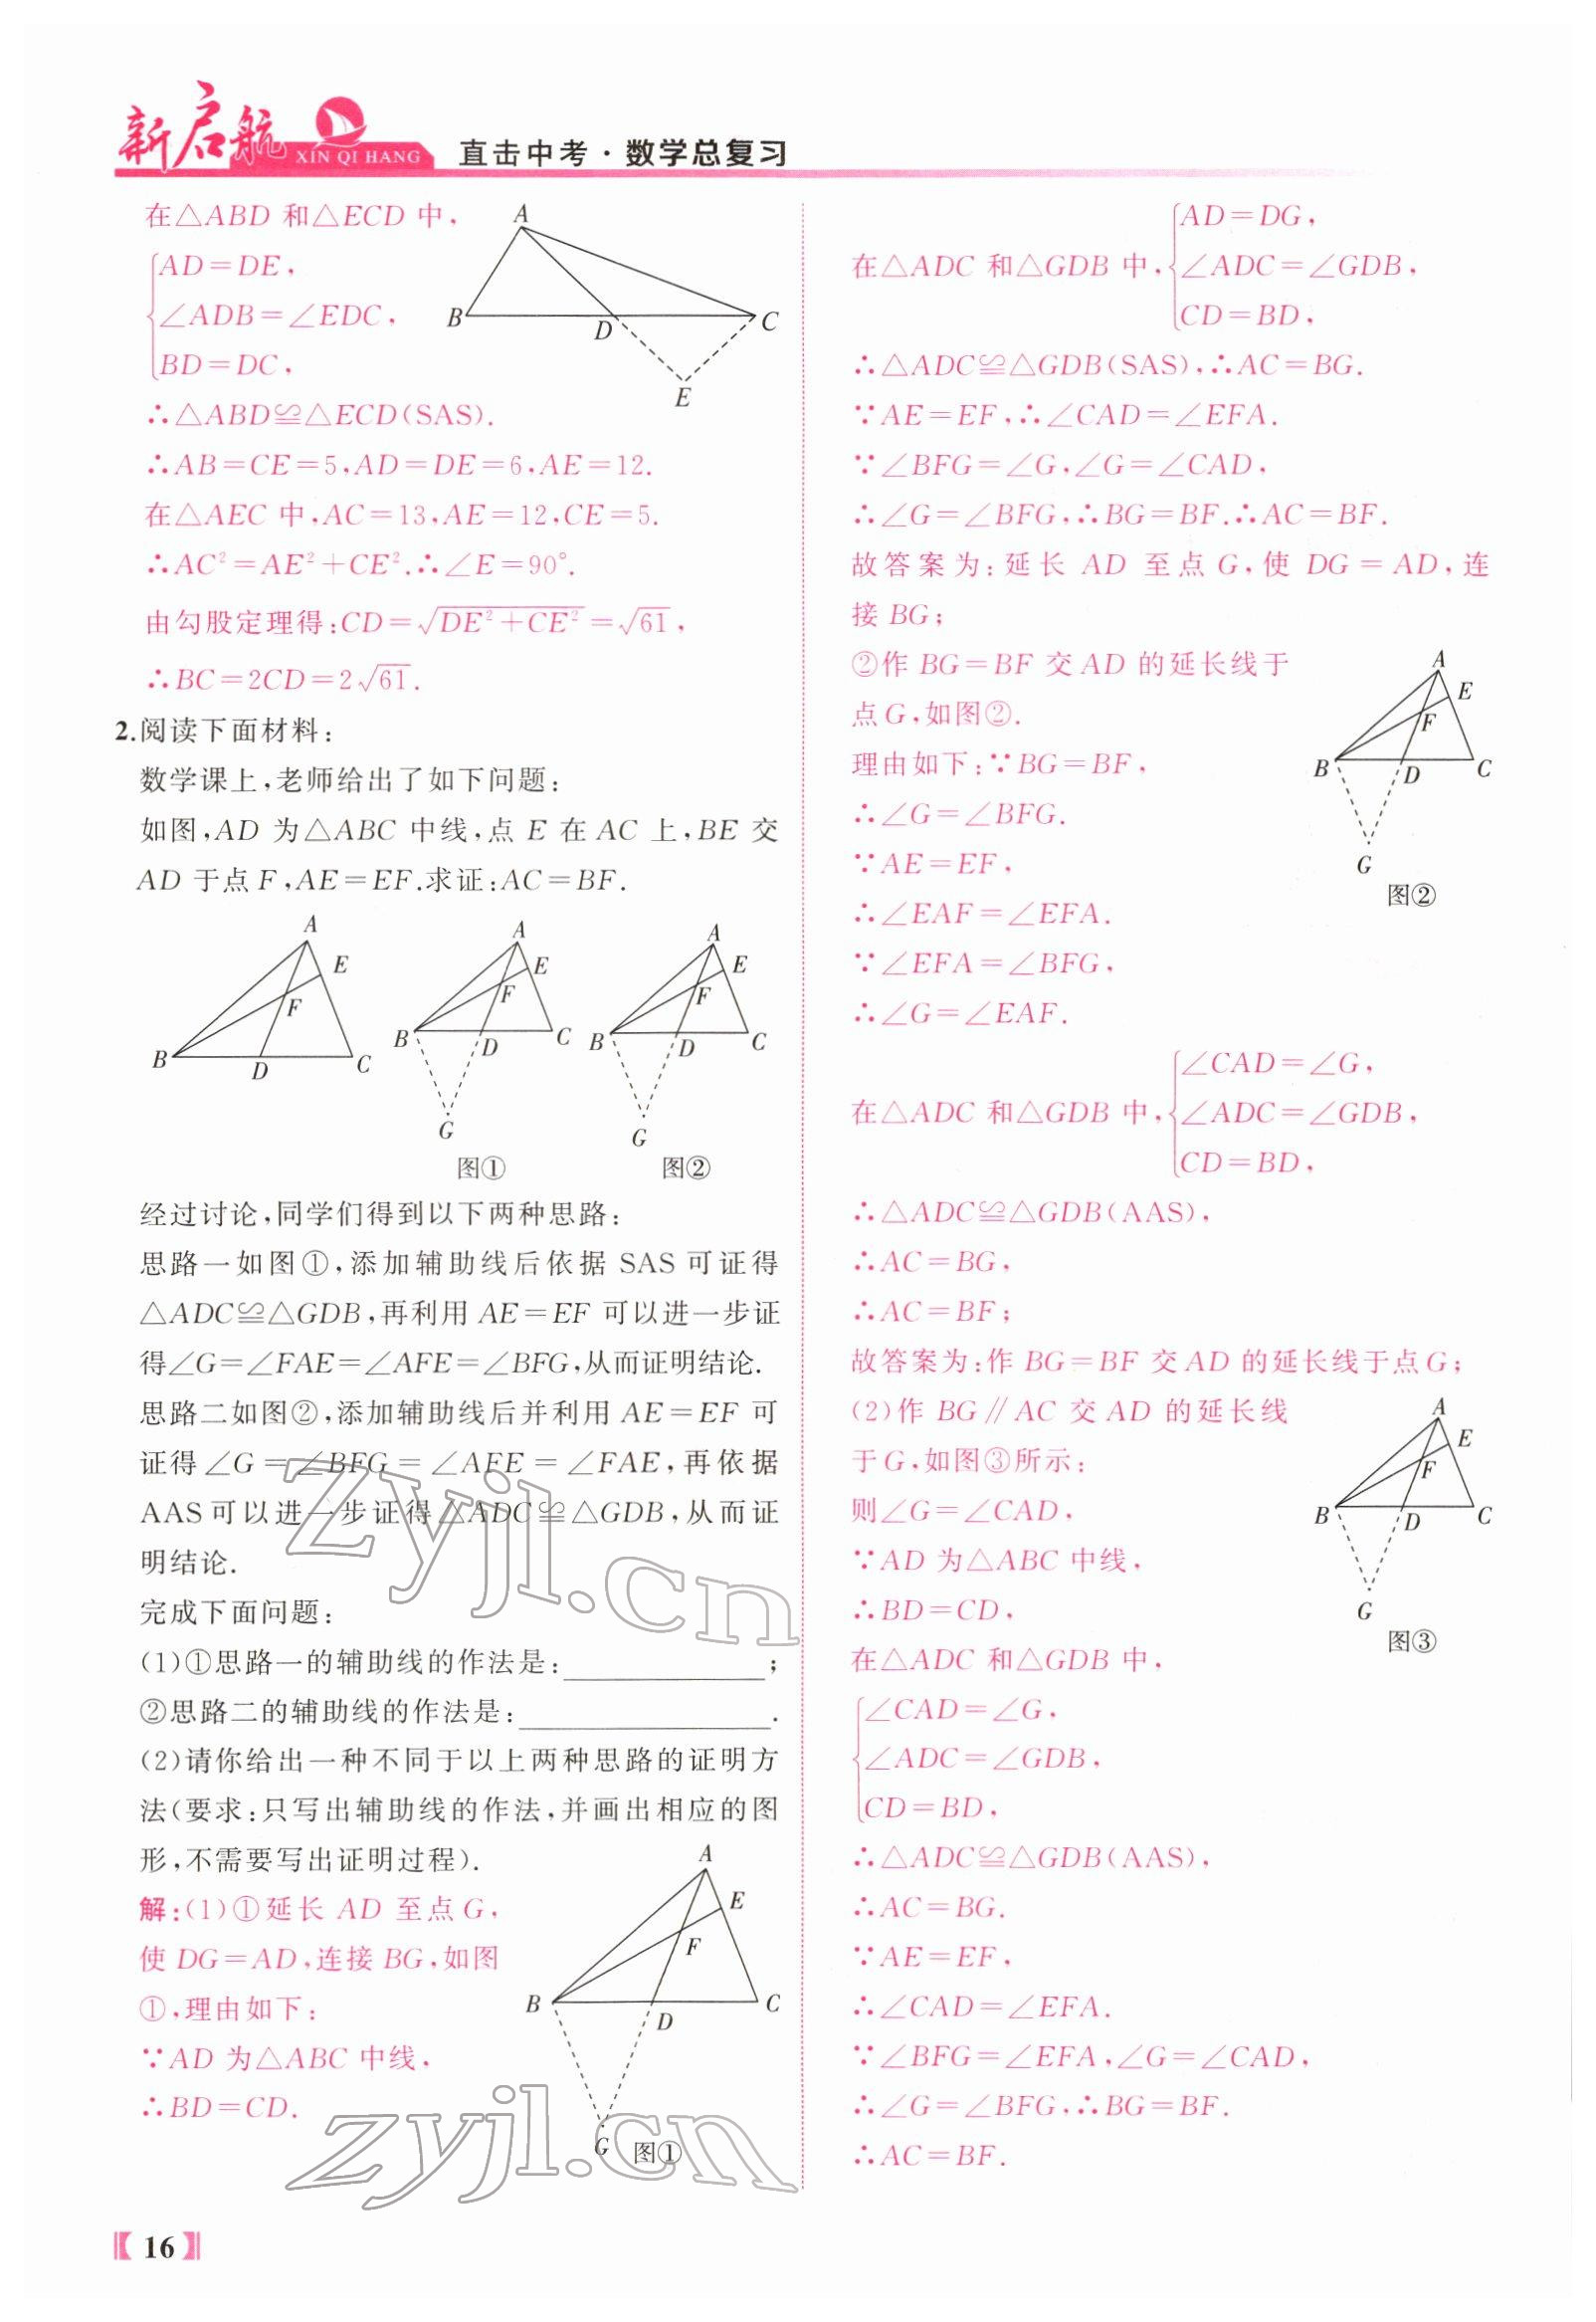 新启航
XIN QI HANG
直击中考·数学总复习
在△ABD 和△ECD 中,
AD=DE,
∠ADB=∠EDC,
BD=DC,
A
B
D
C
E
∴△ABD≌△ECD(SAS).
∴AB=CE=5,AD=DE=6,AE=12.
在△AEC 中,AC=13,AE=12,CE=5.
∴AC²=AE²+CE².∴∠E=90°.
由勾股定理得:CD=√(DE²+CE²)=√61,
∴BC=2CD=2√61.
2.阅读下面材料:
数学课上,老师给出了如下问题:
如图,AD 为△ABC 中线,点 E 在 AC 上,BE 交
AD 于点 F,AE=EF.求证:AC=BF.
A
E
F
B
D
C
A
E
F
B
D
C
G
图①
A
E
F
B
D
C
G
图②
经过讨论,同学们得到以下两种思路:
思路一如图①,添加辅助线后依据 SAS 可证得
△ADC≌△GDB,再利用 AE=EF 可以进一步证
得∠G=∠FAE=∠AFE=∠BFG,从而证明结论.
思路二如图②,添加辅助线后并利用 AE=EF 可
证得∠G=∠BFG=∠AFE=∠FAE,再依据
AAS可以进一步证得△ADC≌△GDB,从而证
明结论.
完成下面问题:
(1)①思路一的辅助线的作法是:____________;
②思路二的辅助线的作法是:____________.
(2)请你给出一种不同于以上两种思路的证明方
法(要求:只写出辅助线的作法,并画出相应的图
形,不需要写出证明过程).
解:(1)①延长 AD 至点G,
使 DG=AD,连接 BG,如图
①,理由如下:
∵AD 为△ABC 中线,
∴BD=CD.
A
E
F
B
D
C
G
图①
zyjl.cn
zyjl.cn
在△ADC 和△GDB 中,
AD=DG,
∠ADC=∠GDB,
CD=BD,
∴△ADC≌△GDB(SAS),∴AC=BG.
∵AE=EF,∴∠CAD=∠EFA.
∵∠BFG=∠G,∠G=∠CAD,
∴∠G=∠BFG,∴BG=BF.∴AC=BF.
故答案为:延长 AD 至点 G,使 DG=AD,连
接 BG;
②作 BG=BF 交 AD 的延长线于
点G,如图②.
理由如下:∵BG=BF,
∴∠G=∠BFG.
∵AE=EF,
∴∠EAF=∠EFA.
∵∠EFA=∠BFG,
∴∠G=∠EAF.
A
E
F
B
D
C
G
图②
在△ADC 和△GDB 中,
∠CAD=∠G,
∠ADC=∠GDB,
CD=BD,
∴△ADC≌△GDB(AAS),
∴AC=BG,
∴AC=BF;
故答案为:作 BG=BF 交 AD 的延长线于点G;
(2)作 BG∥AC 交 AD 的延长线
于G,如图③所示;
则∠G=∠CAD,
∵AD 为△ABC 中线,
∴BD=CD,
A
E
F
B
D
C
G
图③
在△ADC 和△GDB 中,
∠CAD=∠G,
∠ADC=∠GDB,
CD=BD,
∴△ADC≌△GDB(AAS),
∴AC=BG.
∵AE=EF,
∴∠CAD=∠EFA.
∵∠BFG=∠EFA,∠G=∠CAD,
∴∠G=∠BFG,∴BG=BF.
∴AC=BF.
16